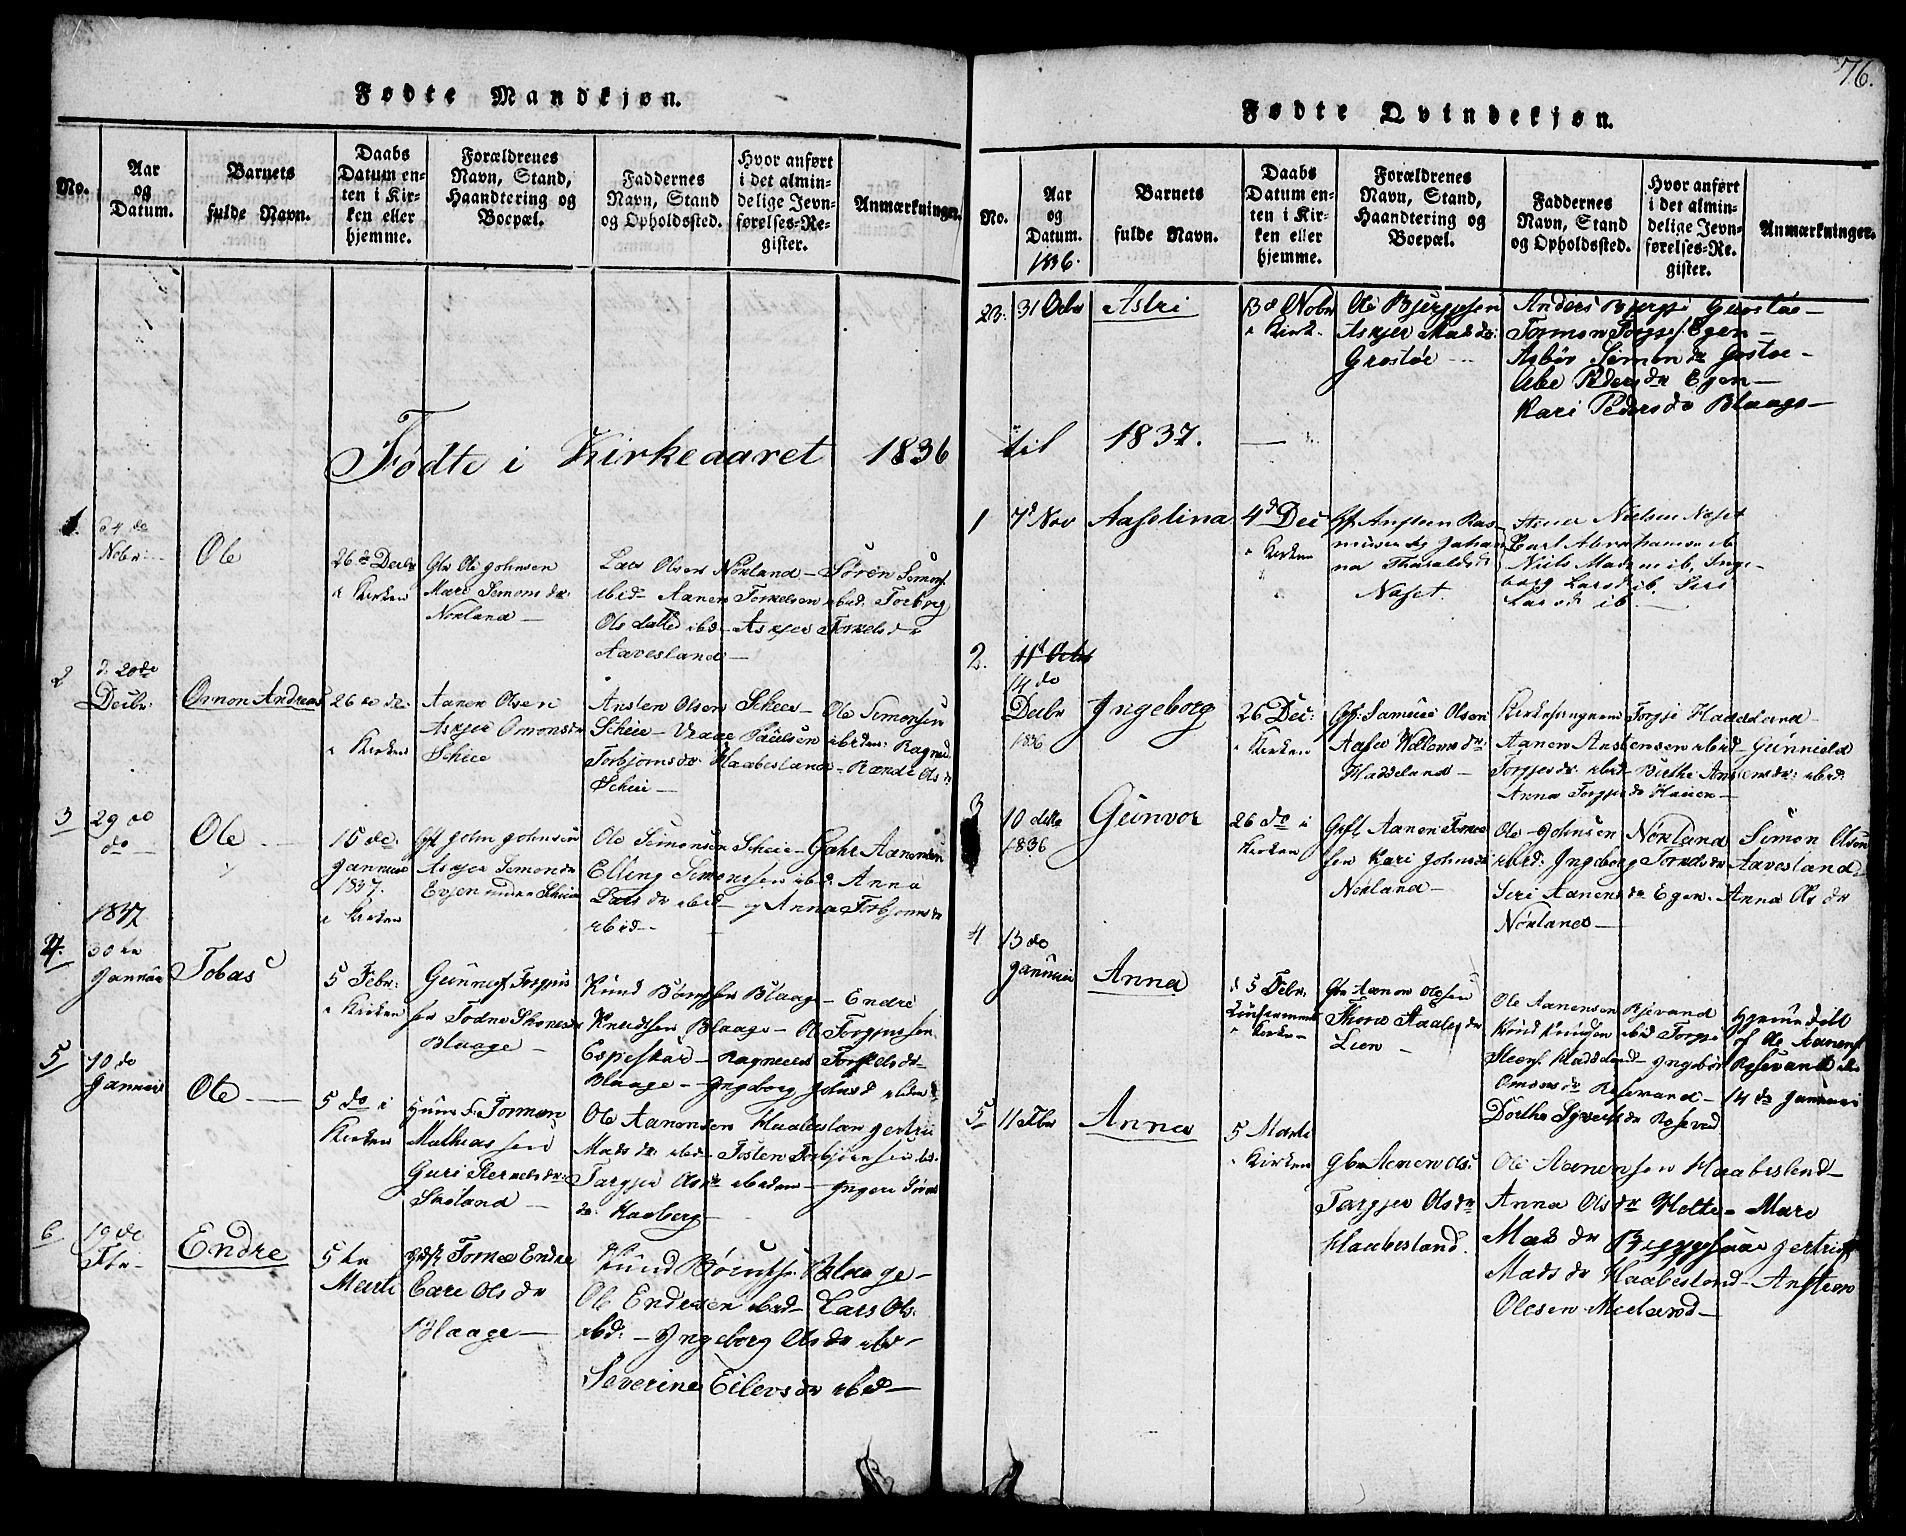 76.
Fødte Mandkjøn.
No.
Aar
og
Datum.
Barnets
fulde Navn.
Daabs
Datum en-
ten i Kir-
ken eller
hjemme.
Forældrenes
Navn, Stand,
Haandtering og
Boepæl.
Faddernes
Navn, Stand
og Opholdssted.
Hvor anført
i det almin-
delige Jevn-
førelses-Re-
gister.
Anmærkninger.
Fødte i Kirkeaaret 1836
1.
24 de
Nobr:
Ole
26 de Decbr
i Kirken
Ole Johnsen
Mari Simons dr:
Norland —
Lars Olsen Norland — Sören Simons
ibid — Aanen Torkelsen ibid. Torborg
Ols datter ibd — Asgjer Torkels dr
Aavesland —
2
d. 20 de
Decbr:
Omon Andreas
26 de de:
i Kirken
Aanen Olsen
Asgjer Omons dr
Scheie
Ansten Olsen Scheie — Ole Simonsen
Scheie — Vraae Paulsen ibiden: Ragnild
Torbjorns dr Haabesland — Rænde Ols dr
Scheie —
3
29 de
do
Ole —
15 de:
Januar
1837.
i Kirken
Gft John Johnsen
Asgjer Simons dr
Eigen under Scheie
Ole Simonsen Scheie — Gahr Aanensen
Elling Simonssen ibid. Anna
Lars dr ibid — og Anna Torbjorns dr
ibid —
1837
4.
30 te
Januar
Tobas
5 Febr:
i Kirken
Gunnuf Torgius
sen Todne
Blaage —
Knud Blaage — Endre
Knudsen Blaage — Ole Torgjussen
Espeskar — Ragnild Torkels dr
Blaage — Ingeborg ibden
5
10 do
Januar
Ole —
5 do i
Kirken
Huusm. Tormon
Mathiassen
Guri dr:
Skoland —
Ole Aanensen Haabesland Gertru
Mads dr ibid — Tosten Torbjörnsen ibd.
Targjer Ols dr ibiden — Ingeri
dr. Haaberg —
6
19 de
Fbr —
Endre
5 te
Marti
Tomas Endre
Cari Ols dr
Blaage —
Knud Blaage —
Ole Endresen ibid — Lars Ols:
ibd: — Ingeborg Ols dr ibd —
Severine Eilevs dr ibid —
Fødte Qvindekjøn.
No.
Aar
og
Datum.
1836.
Barnets
fulde Navn.
Daabs
Datum en-
ten i Kir-
ken eller
hjemme.
Forældrenes
Navn, Stand,
Haandtering og
Boepæl.
Faddernes
Navn, Stand
og Opholdssted.
Hvor anført
i det almin-
delige Jevn-
førelses-Re-
gister.
Anmærkninger.
23.
31 Octbr
Astri
13 d Nobr
i Kirk.
Ole Bjergesen
Asgjer Mads dr:
Grostøe —
Anders Bjergje Grostøe —
Tormon Torgjs. Egen —
Asbör Simon dr Grostøe —
Abe Peders dr Egen —
Kari Peders dr Blaage —
til 1837. —
1
7 d Nov
Aaselina
4 d Dec
i Kirken
Gf. Ansteen Ras-
musen og Johan-
na Tharalds d.
Naset.
Nielsen Naset
Carl Abrahamsen ib
Niels Madsen ib, Inge-
borg Lars d ib. Siri
Lars d ib —
2.
11 d Octbr
14 do
Decbr
1836
Ingeborg
26 Dec:
i Kirken
Gft. Samuel Olsen
Aaser Willoms dr:
Haddeland —
Kirkesangeren Torgje Haddeland —
Aanen Anstensen ibid — Gunnild
Torgjes dr: ibid — Birthe Anstens dr: ibid:
Anna Torgjes dr Hauen —
3
10 de
1836
Gunvor
26 do i
Kirken
Gft Aanen Tomas
sen Kari Johns dr
Norland —
Ole Johnsen Norland Simon Olsen
ibid: Ingeborg Torkels dr Aavesland
Siri Aanens dr Egen. Anna Ols dr
Norland —
4
13 do
Januar
Anna
d 5 Febr:
i Kirken
Gbr Aanen Olesen
Thore Aasles dr
Lien —
Ole Aanensen Rosevand
Knud Knudsen ibid Torgje
Steens. Haddeland — Ingebor
Omons dr Rosevand —
Dorthe Syverts dr Rosevad
Hjemmedöbt
af Ole Aanens
Rosevand den
14 de Januar
5
11 Fbr
Anna
5 Marti
i Kirken
Gbr Aanen Ols:
Targjer Ols dr
Haabesland.
Ole Aanensen Haabesland —
Anna Ols dr Holte — Mari
Mads dr Gertru
Mads dr Haabesland — Ansten
Olesen Meeland —